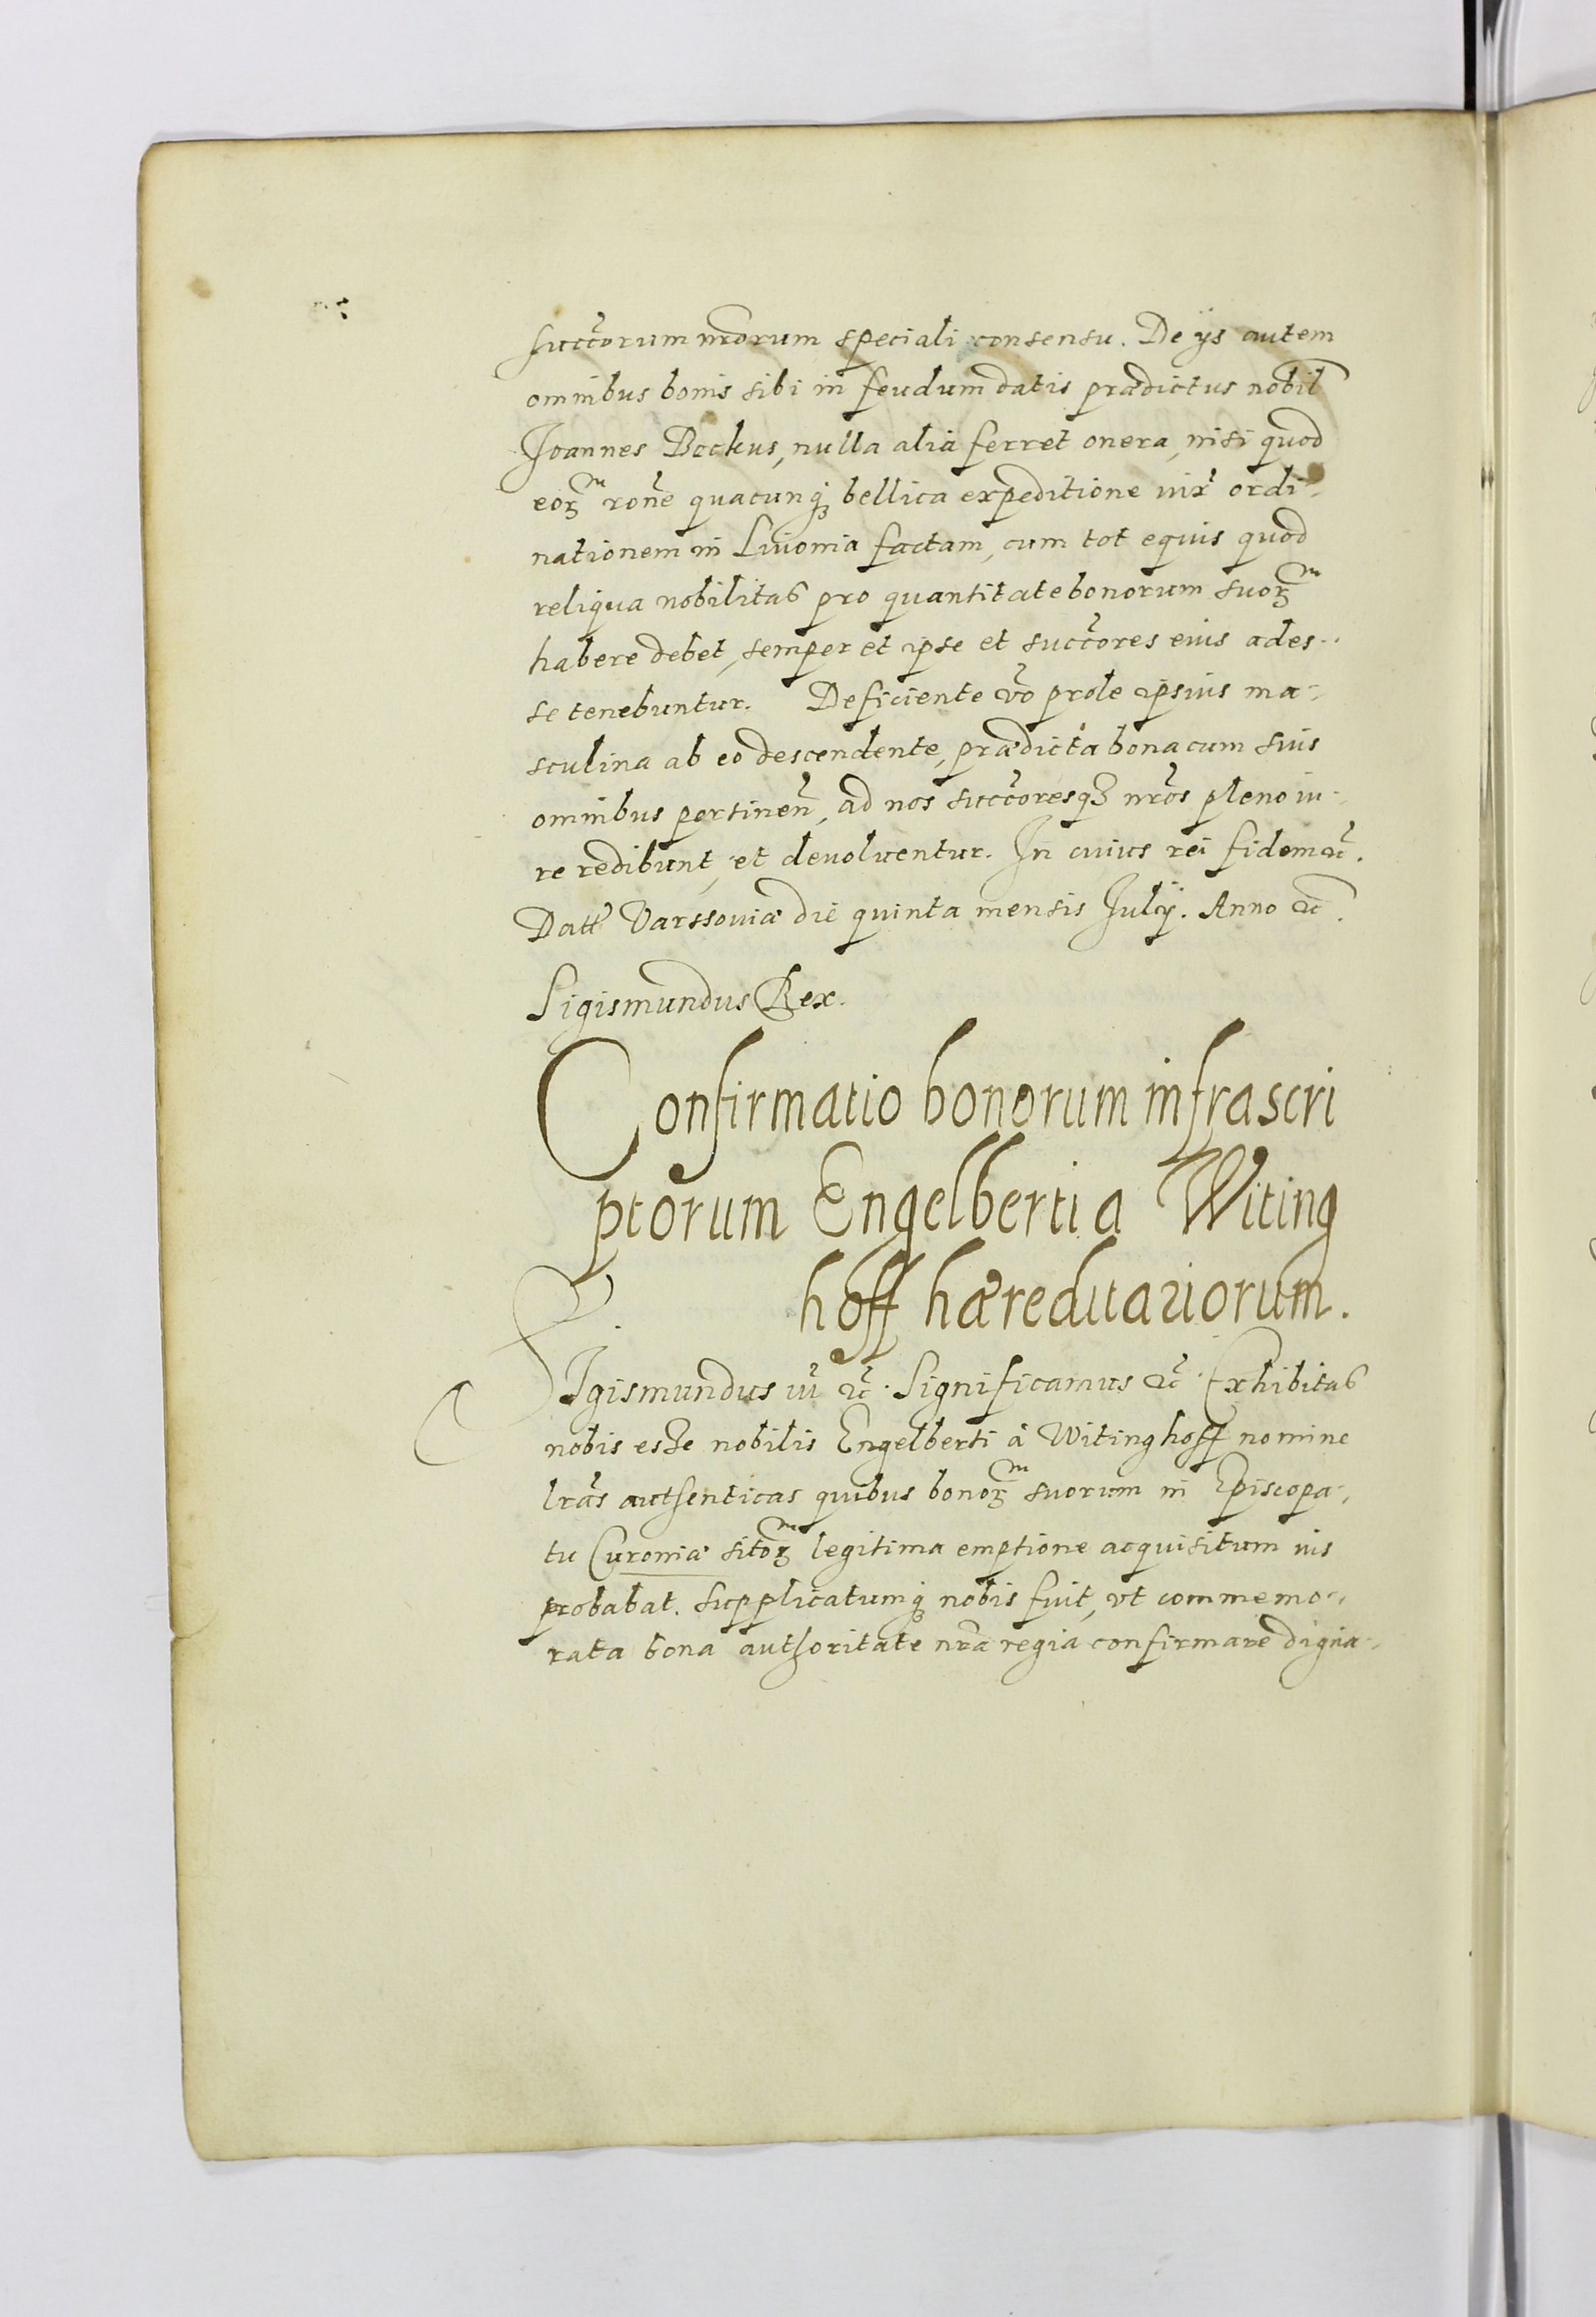 succorum nrorum speciali consensu. De ijs autem
omnibus bonis sibi in feudum datis prædictus nobil
Joannes Bockus, nulla alia ferret onera, nisi quod
eoꝝ rone quacunqꝫ bellica expeditione iux ordi-
nationem in Liuonia factam, cum tot equis quod
reliqua nobilitas pro quantitate bonorum suoꝝ
habere debet, semper et ipse et succores eius ades-
se tenebuntur. Deficiente vo prole ipsius ma-
sculina ab eo descendente, prædicta bona cum suis
omnibus pertinen, ad nos succoresqꝫ nros pleno iu-
re redibunt, et deuoluentur. In cuius rei fidem &c.
Datt Varssouiæ die quinta mensis Julij. Anno &c.
Sigismundus Rex.
Confirmatio bonorum infrascri
ptorum Engelberti a Witing
hoff hæreditariorum.
SIgismundus iii &c. Significamus &c. Exhibitas
nobis esse nobilis Engelberti à Witinghoff nomine
lras authenticas quibus bonoꝝ suorum in Episcopa-
tu Curoniæ sitoꝝ legitima emptione acquisitum ius
probabat. Supplicatumqꝫ nobis fuit, vt commemo-
rata bona authoritate nra regia confirmare digna-